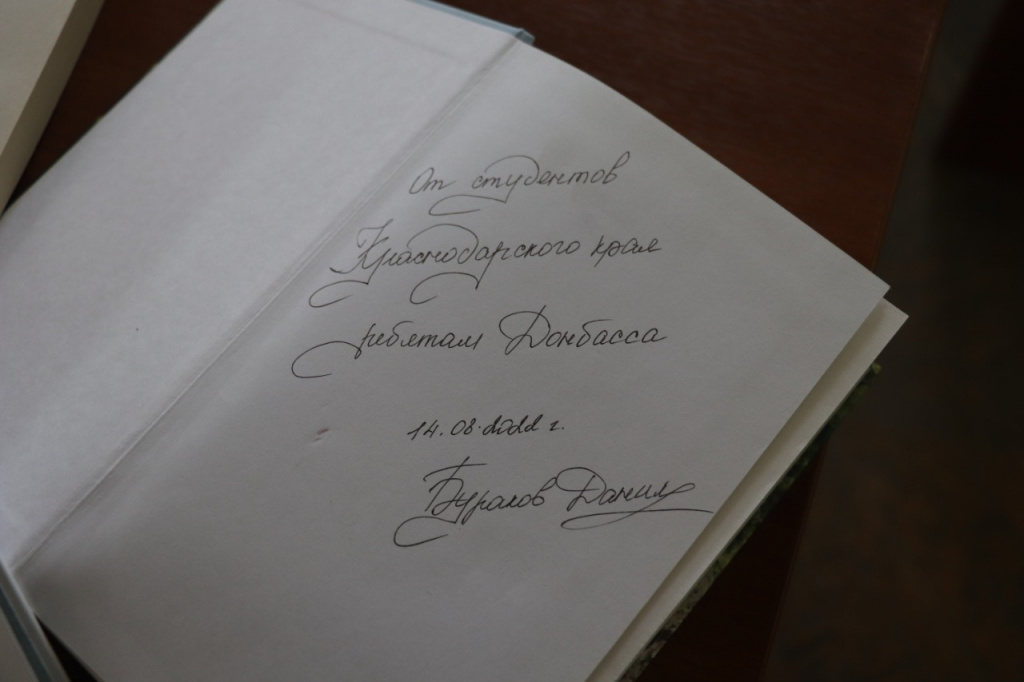 От студентов
Краснодарского края
ребятам Донбасса
14.08.2022 г.
Данил